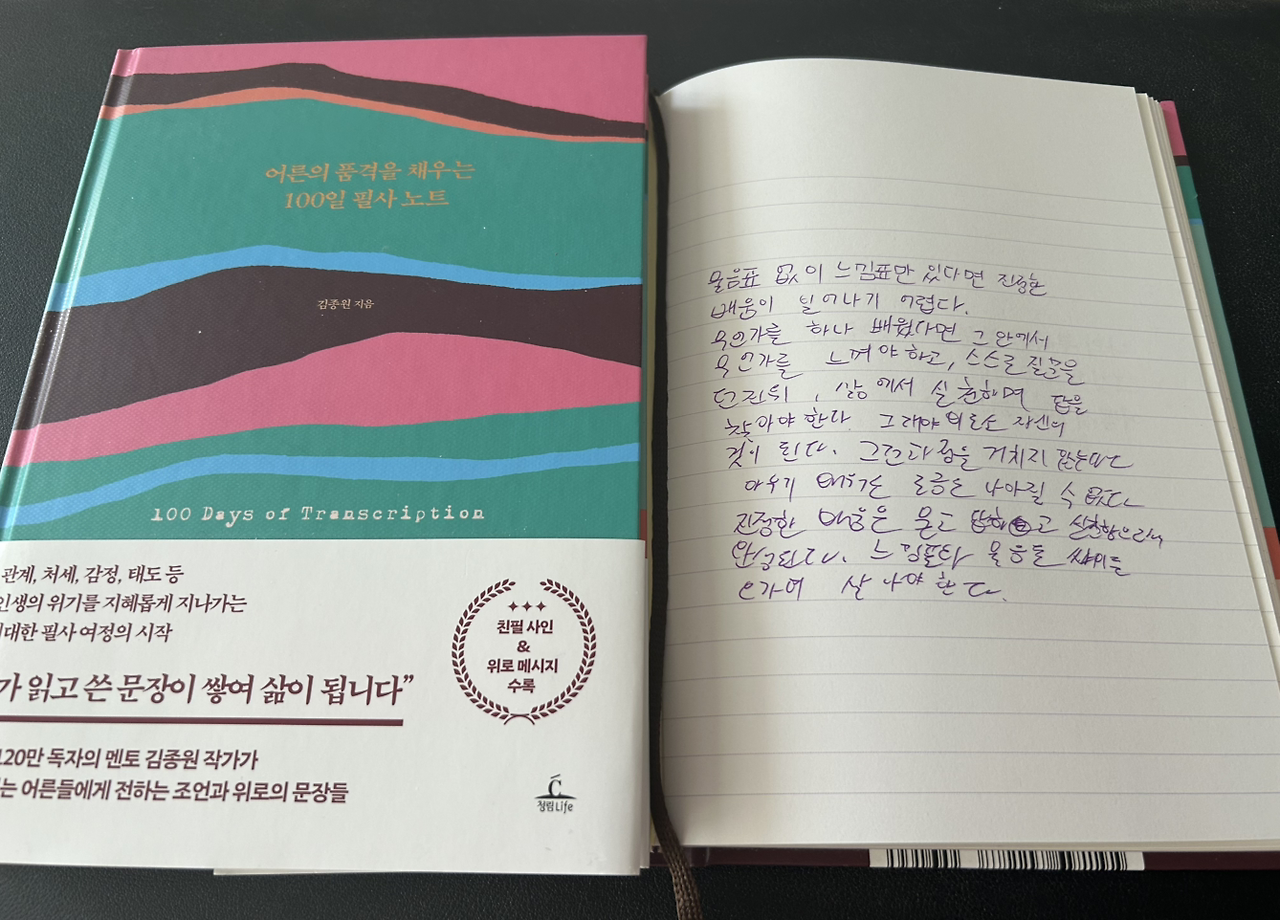 어른의 품격을 채우는
100일 필사 노트
김종원 지음
100 Days of Transcription
관계, 처세, 감정, 태도 등
인생의 위기를 지혜롭게 지나가는
대한 필사 여정의 시작
가 읽고 쓴 문장이 쌓여 삶이 됩니다”
120만 독자의 멘토 김종원 작가가
는 어른들에게 전하는 조언과 위로의 문장들
친필 사인
&
위로 메시지
수록
청림Life
물음표 없이 느낌표만 있다면 진정한
배움이 일어나기 어렵다.
무언가를 하나 배웠다면 그 안에서
무언가를 느껴야 하고, 스스로 질문을
던진 뒤, 삶에서 실천하며 답을
찾아야 한다. 그래야 비로소 자신의
것이 된다. 그런 과정을 거치지 않는다면
아무리 배워도 나아질 수 없다
진정한 배움은 묻고 답하고 실천함으로써
완성된다. 느낌표와 물음표 사이를
오가며 살아야 한다.